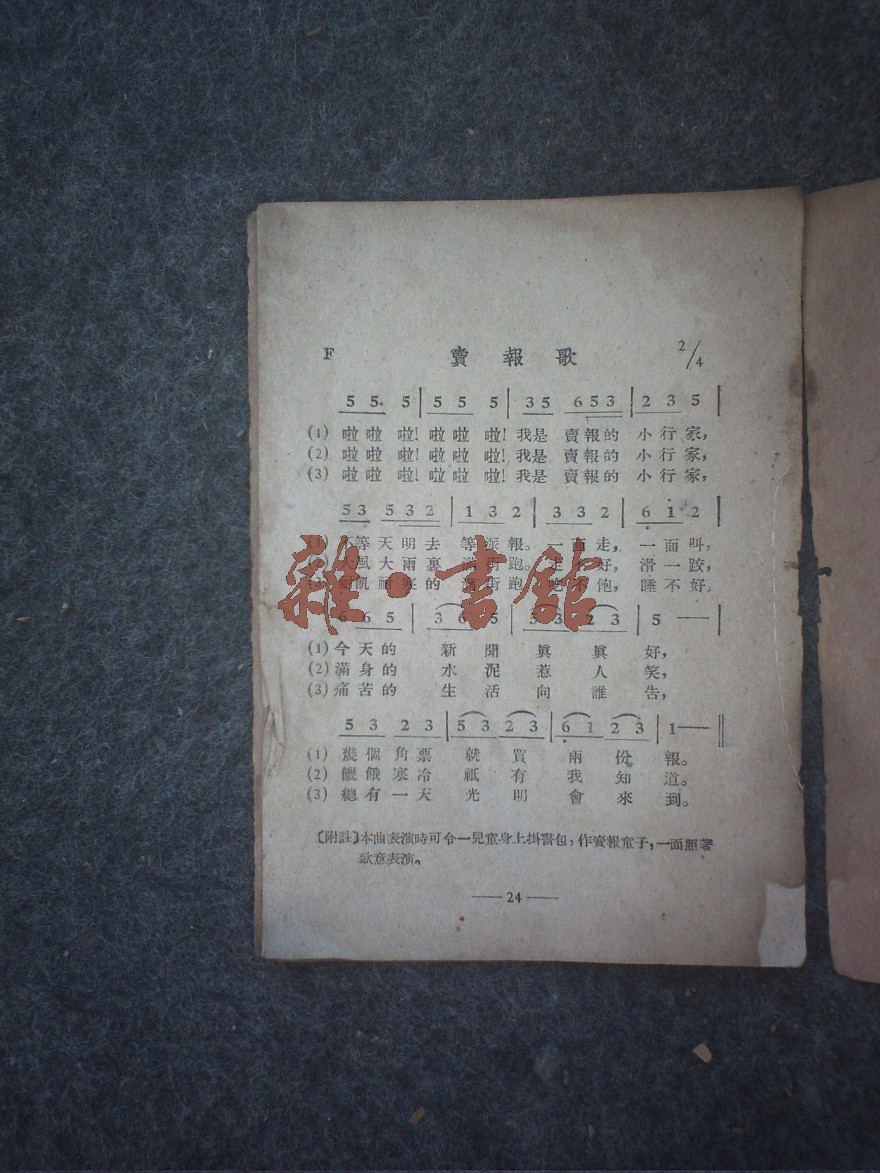 F 賣報歌 2/4
5 5. 5 | 5 5 5 | 3 5 6 5 3 | 2 3 5 |
(1) 啦啦啦! 啦啦啦! 我是賣報的小行家,
(2) 啦啦啦! 啦啦啦! 我是賣報的小行家,
(3) 啦啦啦! 啦啦啦! 我是賣報的小行家,
5 3 5 3 2 | 1 3 2 | 3 3 2 | 6 1 2 |
等天明去等派報。一面走, 一面叫,
風大雨裏滿街跑。走不好, 滑一跤,
飢耐寒的滿街跑, 吃不飽, 睡不好,
雜·書館
6 6 5 | 3 6 5 | 5 3 2 3 | 5 — |
(1) 今天的新聞眞眞好,
(2) 滿身的水泥惹人笑,
(3) 痛苦的生活向誰告,
5 3 2 3 | 5 3 2 3 | 6 1 2 3 | 1 — ‖
(1) 幾個角票就買兩份報。
(2) 饑餓寒冷祇有我知道。
(3) 總有一天光明會來到。
〔附註〕本曲表演時可令一兒童身上掛書包, 作賣報童子, 一面照著
歌意表演。
— 24 —